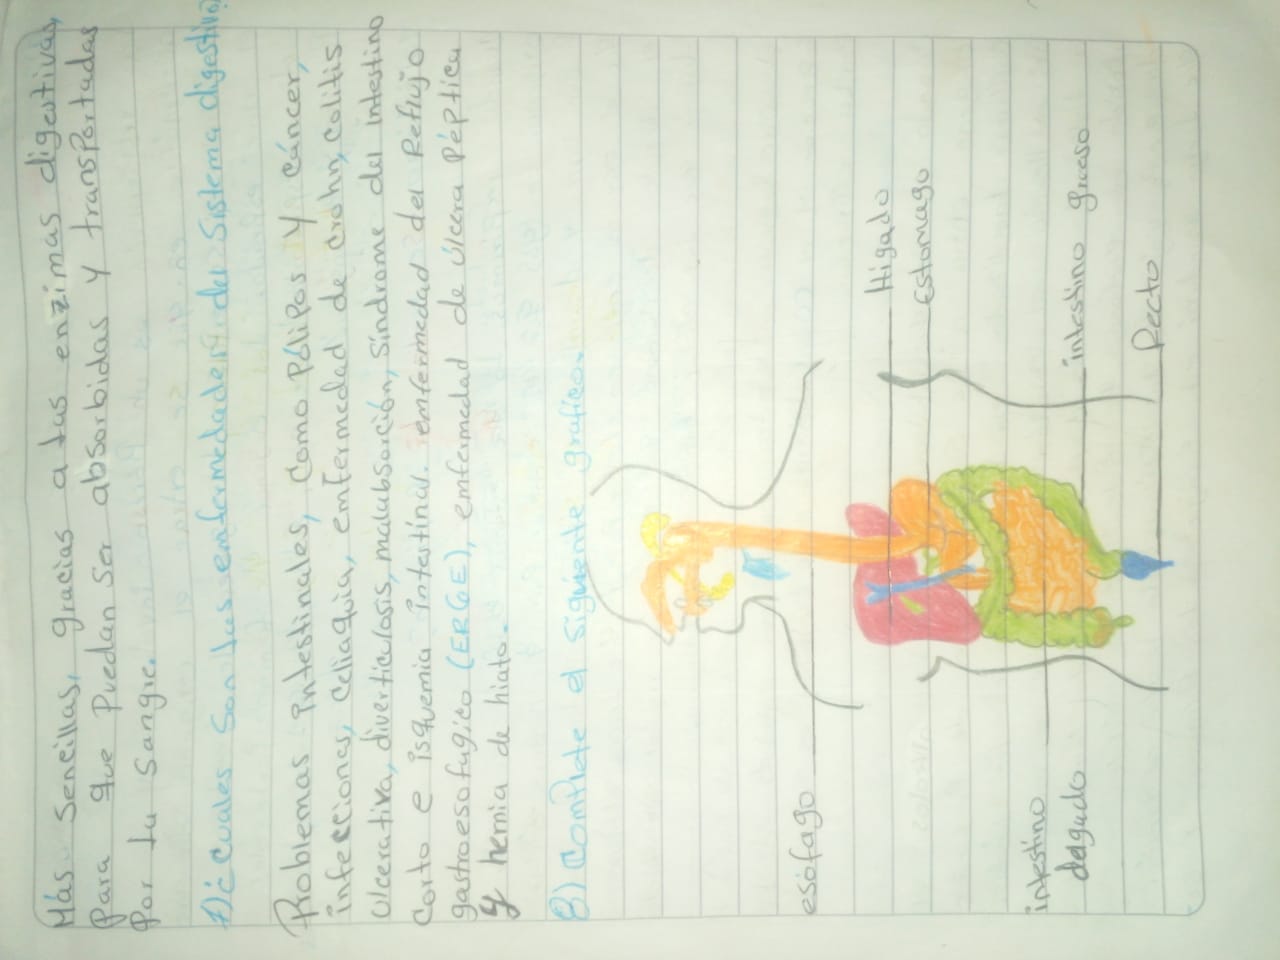 Más sencillas, gracias a las enzimas digestivas,
para que puedan ser absorbidas y transportadas
por la sangre.
7)¿cuales son las enfermedades del sistema digestivo?
Problemas intestinales, como pólipos y cáncer,
infecciones, celiaquia, enfermedad de crohn, colitis
Ulcerativa, diverticulosis, malabsorción, síndrome del intestino
corto e isquemia intestinal. emfermedad del Reflujo
gastroesofugico (ERGE), emfermedad de úlcera Péptica
y hernia de hiato.
8) Complete el siguiente grafico.
Higado
estomago
esófago
intestino grueso
intestino
delgado
Recto